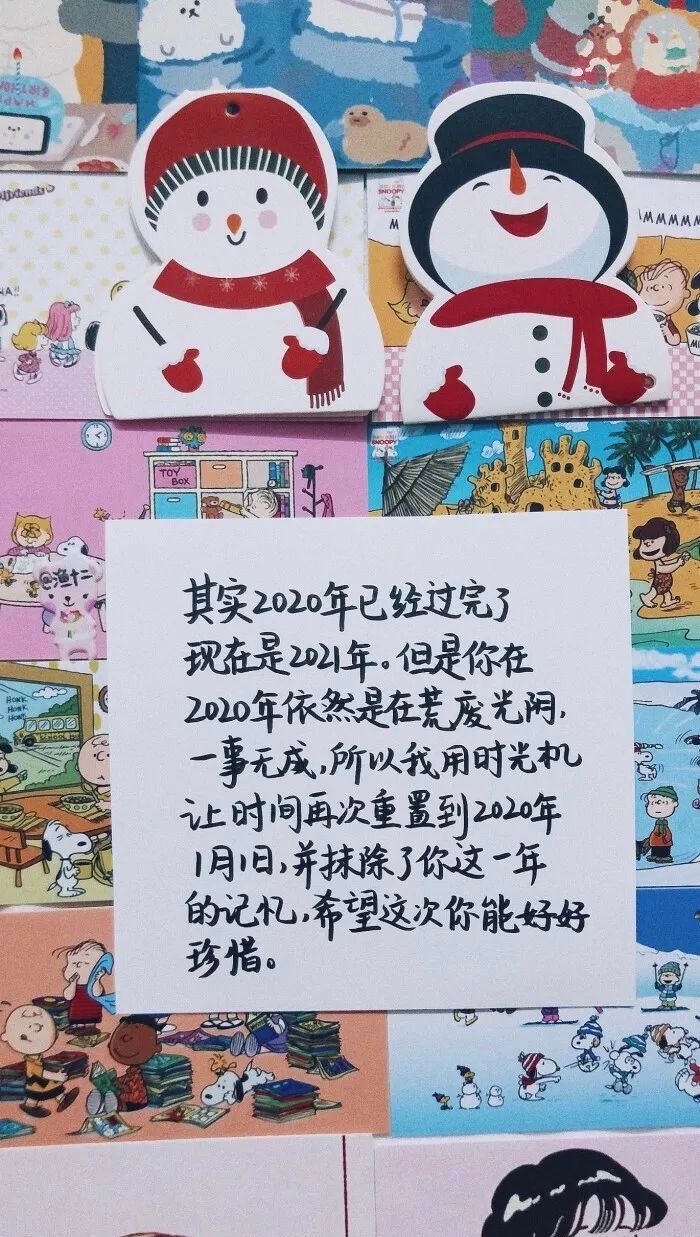 HAPPY
BIRTHDAY
SNOOPY
TOY
BOX
SNOOPY
@渔十二
其实2020年已经过完了
现在是2021年。但是你在
2020年依然是在荒废光阴,
一事无成,所以我用时光机
让时间再次重置到2020年
1月1日,并抹除了你这一年
的记忆,希望这次你能好好
珍惜。
HONK
HONK
HONK